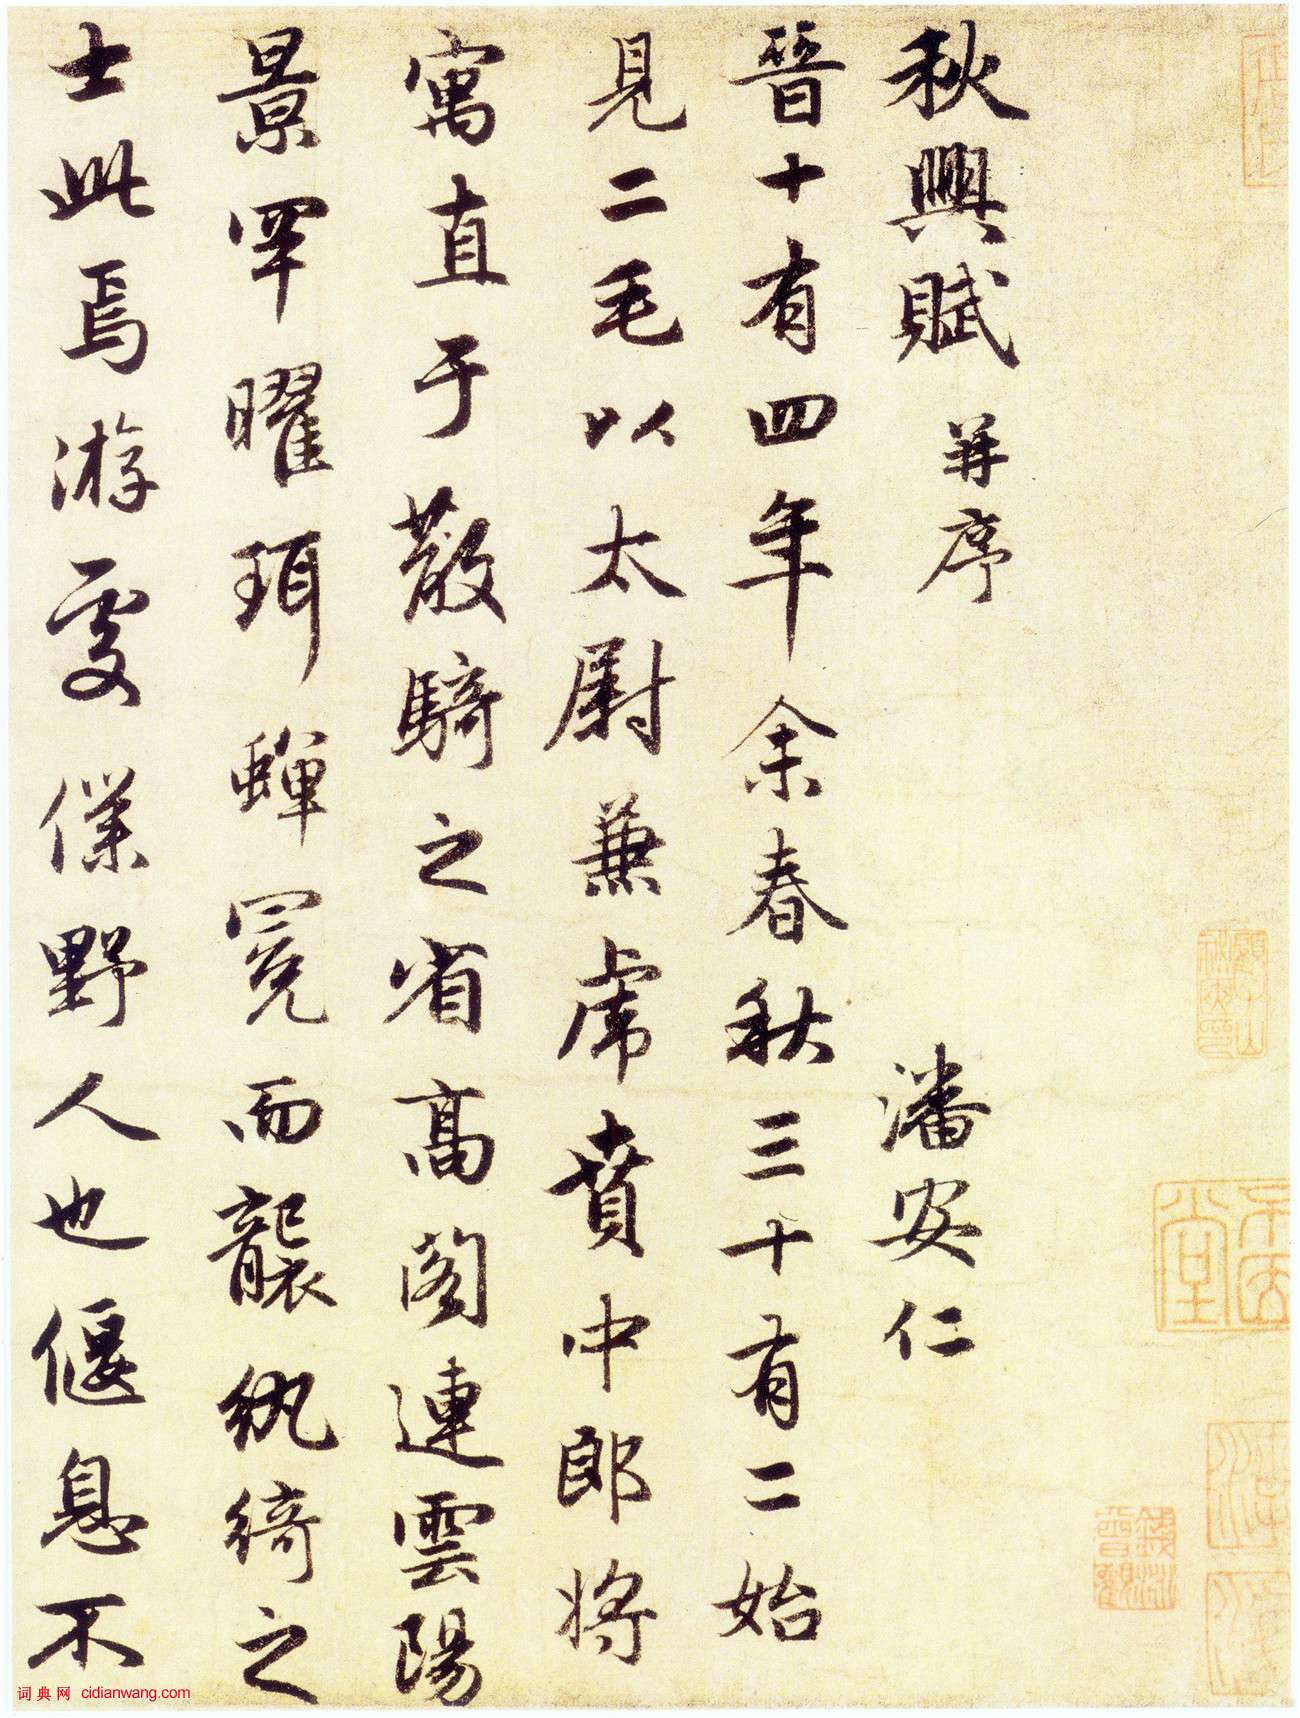 秋興賦 并序 潘安仁
晉十有四年余春秋三十有二始
見二毛以太尉兼虎賁中郎將
寓直于散騎之省高閣連雲陽
景罕曜珥蟬冕而襲紈綺之
士此焉游處僕野人也偃息不
詞典网 cidianwang.com